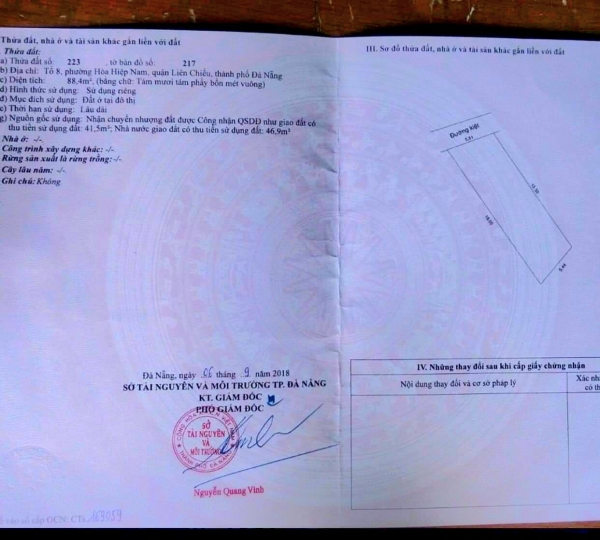 Thửa đất, nhà ở và tài sản khác gắn liền với đất
Thửa đất:
a) Thửa đất số: 223 , tờ bản đồ số: 217
b) Địa chỉ: Tổ 8, phường Hòa Hiệp Nam, quận Liên Chiểu, thành phố Đà Nẵng
c) Diện tích: 88,4m², (bằng chữ: Tám mươi tám phảy bốn mét vuông)
d) Hình thức sử dụng: Sử dụng riêng
đ) Mục đích sử dụng: Đất ở tại đô thị
e) Thời hạn sử dụng: Lâu dài
g) Nguồn gốc sử dụng: Nhận chuyển nhượng đất được Công nhận QSDĐ như giao đất có
thu tiền sử dụng đất: 41,5m²; Nhà nước giao đất có thu tiền sử dụng đất: 46,9m²
Nhà ở: -/-
Công trình xây dựng khác: -/-
Rừng sản xuất là rừng trồng: -/-
Cây lâu năm: -/-
Ghi chú: Không
Đà Nẵng, ngày 26 tháng 9 năm 2018
SỞ TÀI NGUYÊN VÀ MÔI TRƯỜNG TP. ĐÀ NẴNG
KT. GIÁM ĐỐC
PHÓ GIÁM ĐỐC
SỞ
TÀI NGUYÊN
VÀ
MÔI TRƯỜNG
Nguyễn Quang Vinh
vào sổ cấp GCN: CTs
III. Sơ đồ thửa đất, nhà ở và tài sản khác gắn liền với đất
Đường kiệt
IV. Những thay đổi sau khi cấp giấy chứng nhận
Nội dung thay đổi và cơ sở pháp lý
Xác nhậ
có th